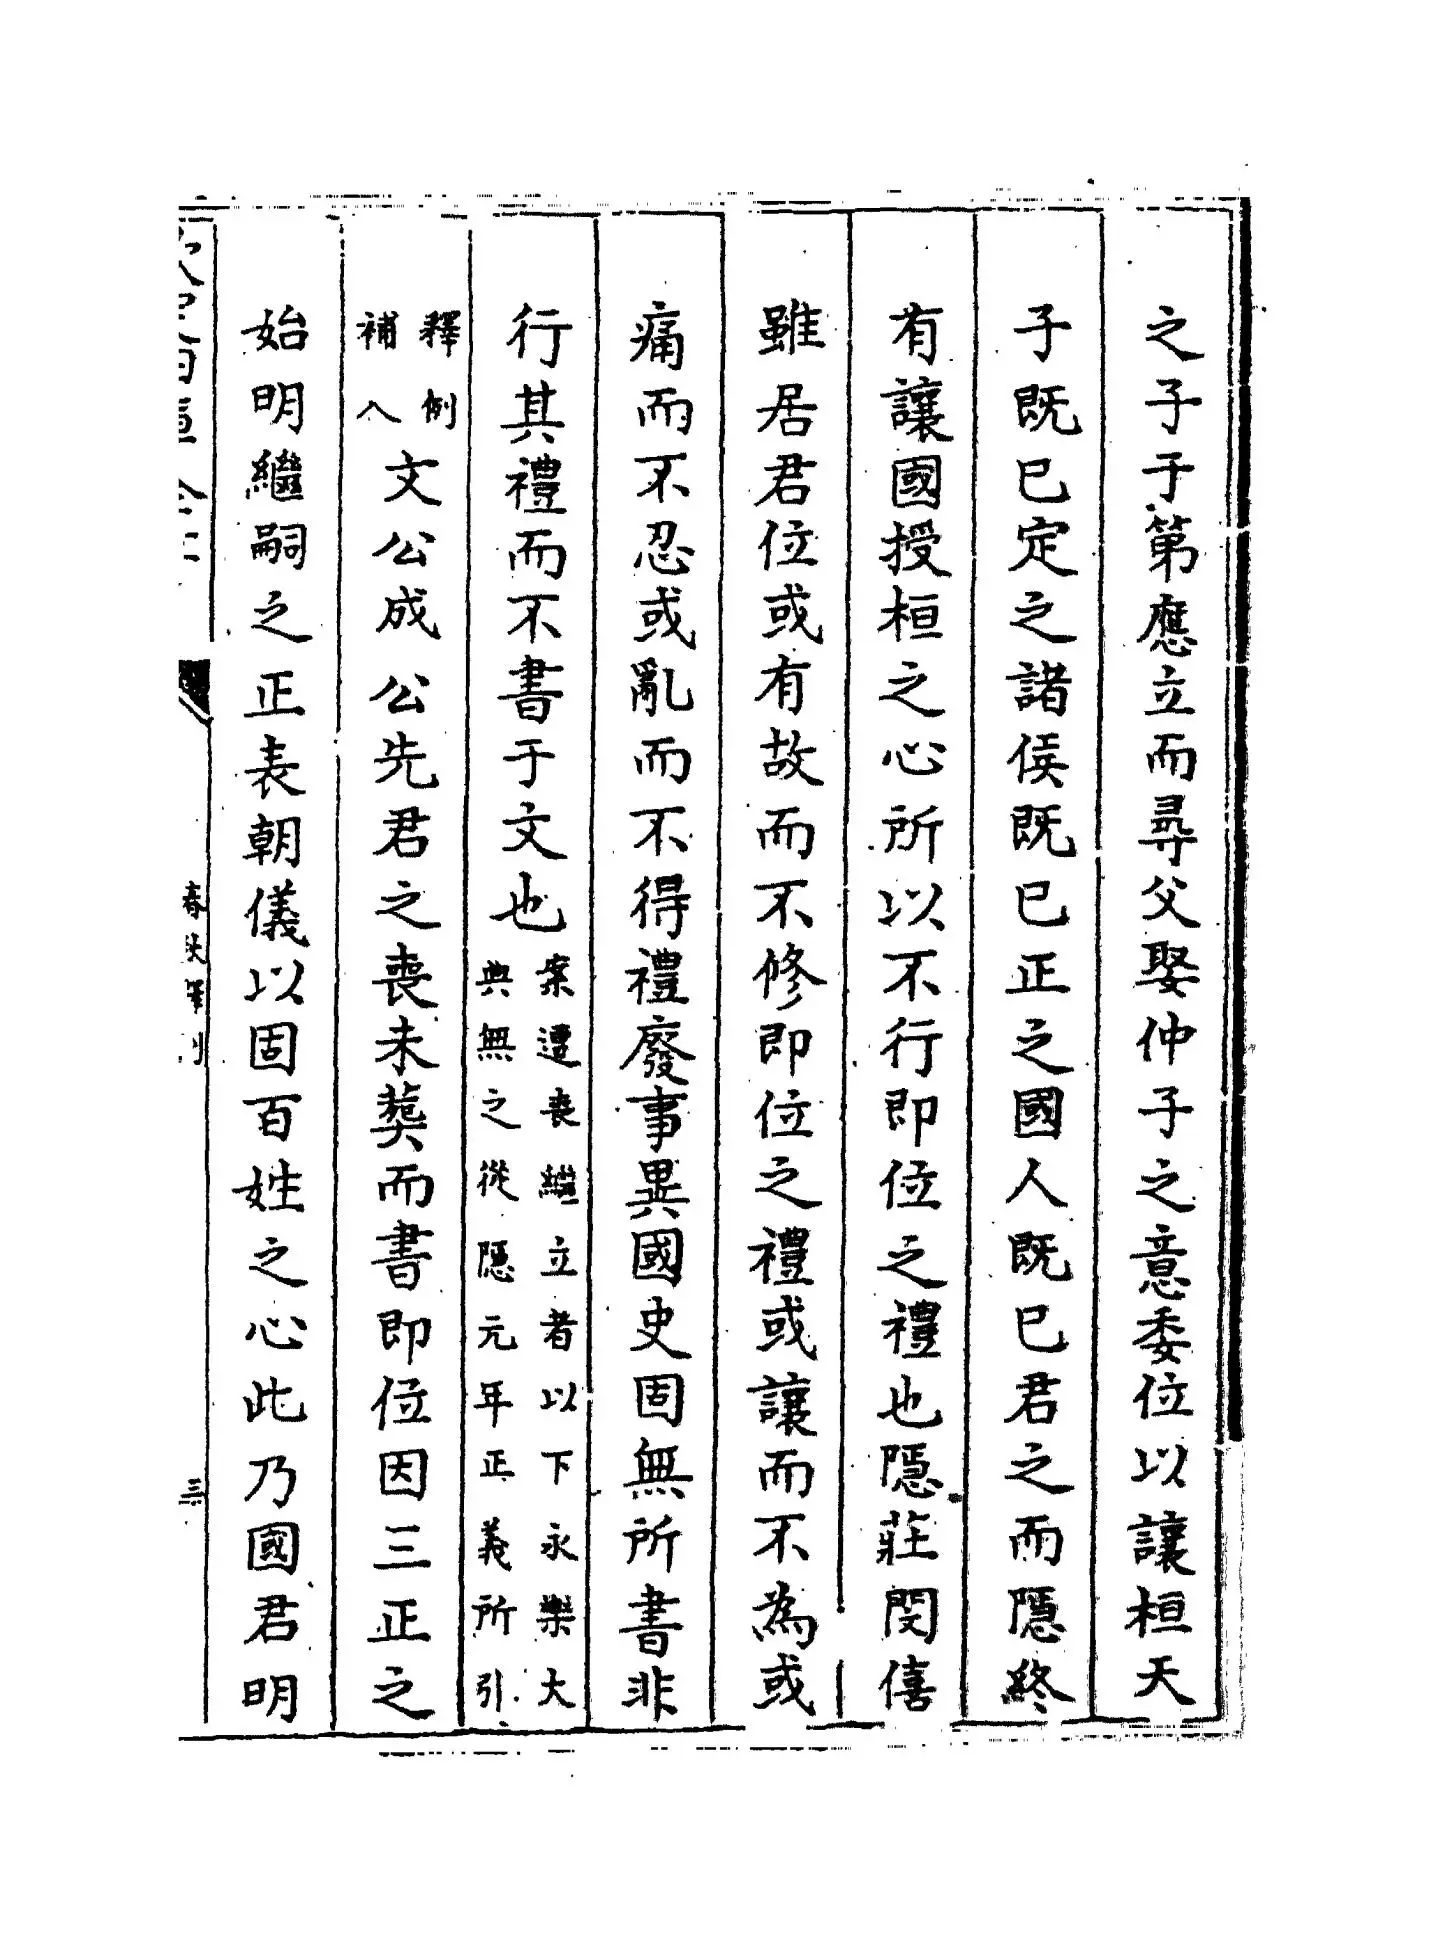 之子于第應立而尋父娶仲子之意委位以讓桓天
子既已定之諸侯既已正之國人既已君之而隱終
有讓國授桓之心所以不行即位之禮也隱莊閔僖
雖居君位或有故而不修即位之禮或讓而不為或
痛而不忍或亂而不得禮廢事異國史固無所書非
行其禮而不書于文也案遭喪繼立者以下永樂大
典無之從隱元年正義所引
釋例
補入文公成公先君之喪未葬而書即位因三正之
始明繼嗣之正表朝儀以固百姓之心此乃國君明
春秋釋例
三